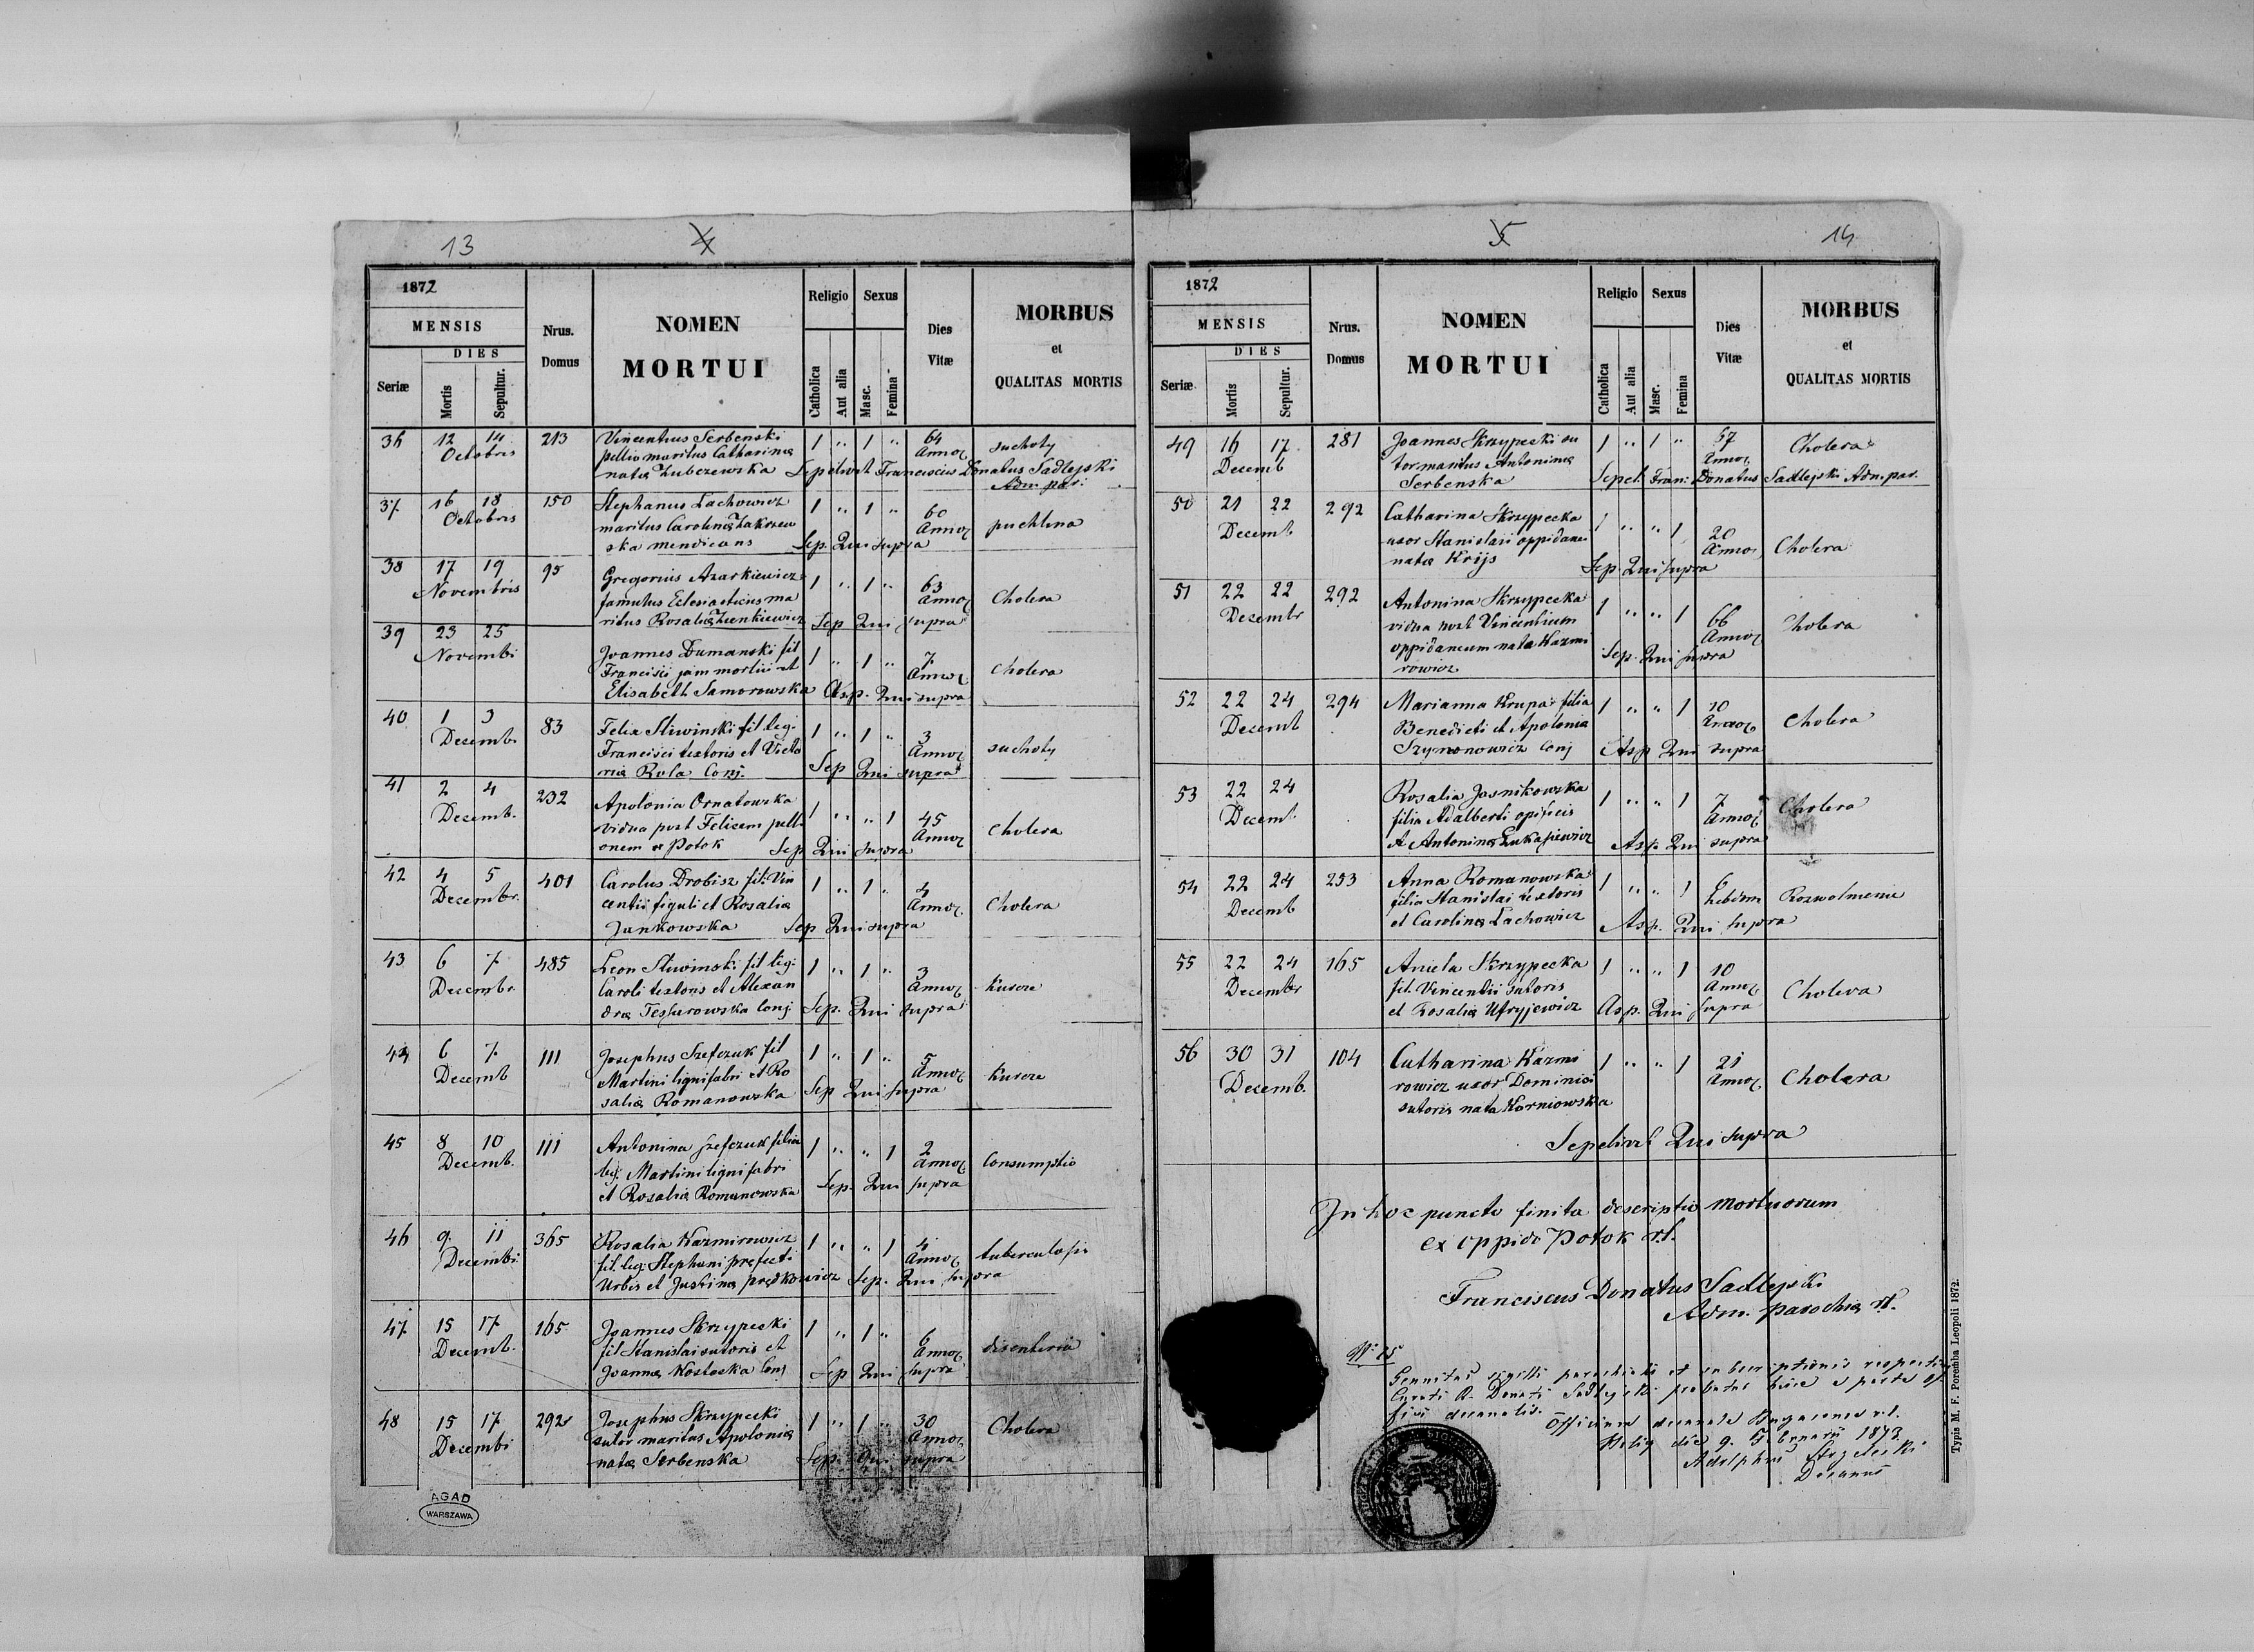 13 4
1872
MENSIS
DIES
Seriæ Mortis Sepultur.
Nrus. Domus
NOMEN
MORTUI
Religio Sexus
Catholica Aut alia Masc. Femina
Dies Vitæ
MORBUS
et
QUALITAS MORTIS
36 12 14 213 Vincentius Serbenski 1 " 1 " 64 suchoty
Octobris pellio maritus Catharinæ Annor
nata Zubczewska Sepelivit Franciscus Donatus Sadlejski
Adm. par.
37 16 18 150 Stephanus Lachowicz 1 " 1 " 60 puchlina
Octobris maritus Carolinæ Zakrzew Annor
ska mendicans Sep. Qui supra
38 17 19 95 Gregorius Azarkiewicz 1 " 1 " 63 Cholera
Novembris famulus Eclesiasticus ma Annor
ritus Rosaliæ Zienkiewicz Sep Qui supra
39 23 25 Joannes Dumanski fil 1 " 1 " 7 Cholera
Novembr Francisci jam mortui et Annor
Elisabeth Samorowska Asp. Qui supra
40 1 3 83 Felix Sliwinski fil. leg. 1 " 1 " 3 suchoty
Decemb. Francisci textoris et Victo Annor
riæ Rola Conj. Sep Qui supra
41 2 4 232 Apolonia Ornatowska 1 " " 1 45 Cholera
Decemb. vidua post Felicem pelli Annor
onem ex Potok Sep Qui supra
42 4 5 401 Carolus Drobisz fil. Vin 1 " 1 " 4 Cholera
Decembr. centii figuli et Rosaliæ Annor
Jankowska Sep Qui supra
43 6 7 485 Leon Sliwinski fil leg. 1 " 1 " 3 Kurcze
Decembr Caroli textoris et Alexan Annor
dræ Tessurowska Conj. Sep. Qui supra
44 6 7 111 Josephus Szefczuk fil 1 " 1 " 5 Kurcze
Decemb Martini lignifabri et Ro Annor
saliæ Romanowska Sep Qui supra
45 8 10 111 Antonina Szefczuk filia 1 " " 1 2 Consumptio
Decemb. leg. Martini lignifabri Annor
et Rosaliæ Romanowska Sep. Qui supra
46 9. 11 365 Rosalia Kazmirowicz 1 " " 1 4 tuberculosis
Decembr. fil. leg. Stephani præfecti Annor
Urbis et Justinæ Prędkowicz Sep. Qui supra
47 15 17 165 Joannes Skrzypecki 1 " 1 " 6 disenteria
Decemb. fil Stanislai sutoris et Annor
Joannæ Kostecka Conj Sep Qui supra
48 15 17 292 Josephus Skrzypecki 1 " 1 " 30 Cholera
Decembr sutor maritus Apoloniæ Annor
nata Serbenska Sep. Qui supra
AGAD
WARSZAWA
5 14
1872
MENSIS
DIES
Seriæ Mortis Sepultur.
Nrus. Domus
NOMEN
MORTUI
Religio Sexus
Catholica Aut alia Masc. Femina
Dies Vitæ
MORBUS
et
QUALITAS MORTIS
49 16 17 281 Joannes Skrzypecki su 1 " 1 " 67 Cholera
Decemb tor maritus Antoninæ Annor
Serbenska Sepel. Fran: Donatus Sadlejski Adm. par.
50 21 22 292 Catharina Skrzypecka 1 " " 1 20 Cholera
Decemb uxor Stanislaii oppidanei Annor
nata Krijs Sep. Qui supra
51 22 22 292 Antonina Skrzypecka 1 " " 1 66 Cholera
Decembr vidua post Vincentium Annor
oppidaneum nata Kazmi Sep. Qui supra
rowicz
52 22 24 294 Marianna Krupa filia 1 " " 1 10 Cholera
Decemb Benedicti et Apolonia Annor
Szymonowicz Conj Asp Qui supra
53 22 24 Rosalia Jasnikowska 1 " " 1 7 Cholera
Decemb. filia Adalberti opificis Annor
et Antoninæ Łukasiewicz Asp. Qui supra
54 22 24 253 Anna Romanowska 1 " " 1 6 Rozwolnienie
Decemb filia Stanislai textoris hebdom
et Carolinæ Lachowicz Asp. Qui supra
55 22 24 165 Aniela Skrzypecka 1 " " 1 10 Cholera
Decembr fil. Vincentii sutoris Annor
et Rosaliæ Ufryjewicz Asp. Qui supra
56 30 31 104 Catharina Kazmi 1 " " 1 21 Cholera
Decemb. rowicz uxor Dominici Annor
sutoris nata Korniowska
Sepelivit Qui supra
In hoc puncto finita descriptio mortuorum
ex oppido Potok rl.
Franciscus Donatus Sadlejski
Adm. parochiæ rl.
No 15
sigilli parochialis et subscriptionis respectivi
Curati R. Donati Sadlejski probatur hisce a parte of
ficii decanalis.
Officium decanale r.l.
die 9. Februarii 1873.
Adolphus
Decanus
Typis M. F. Poremba Leopoli 1872.